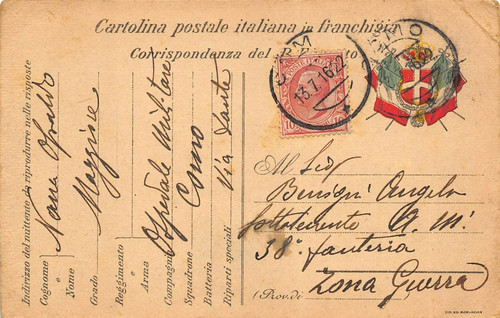 Cartolina postale italiana in franchigia
Corrispondenza del R. to
COMO
13.7.16.22
POSTE ITALIANE
10 10
Indirizzo del mittente da riprodurre nelle risposte
Cognome e Nome
Nana
Grado
Maggiore
Reggimento e Arma
Ospedale Militare
Compagnia
Squadrone
Batteria
Como
Riparti speciali
Via Dante
Al Sig
Benigni Angelo
sottotenente A. M.
38° fanteria
(Prov. di
Zona Guerra